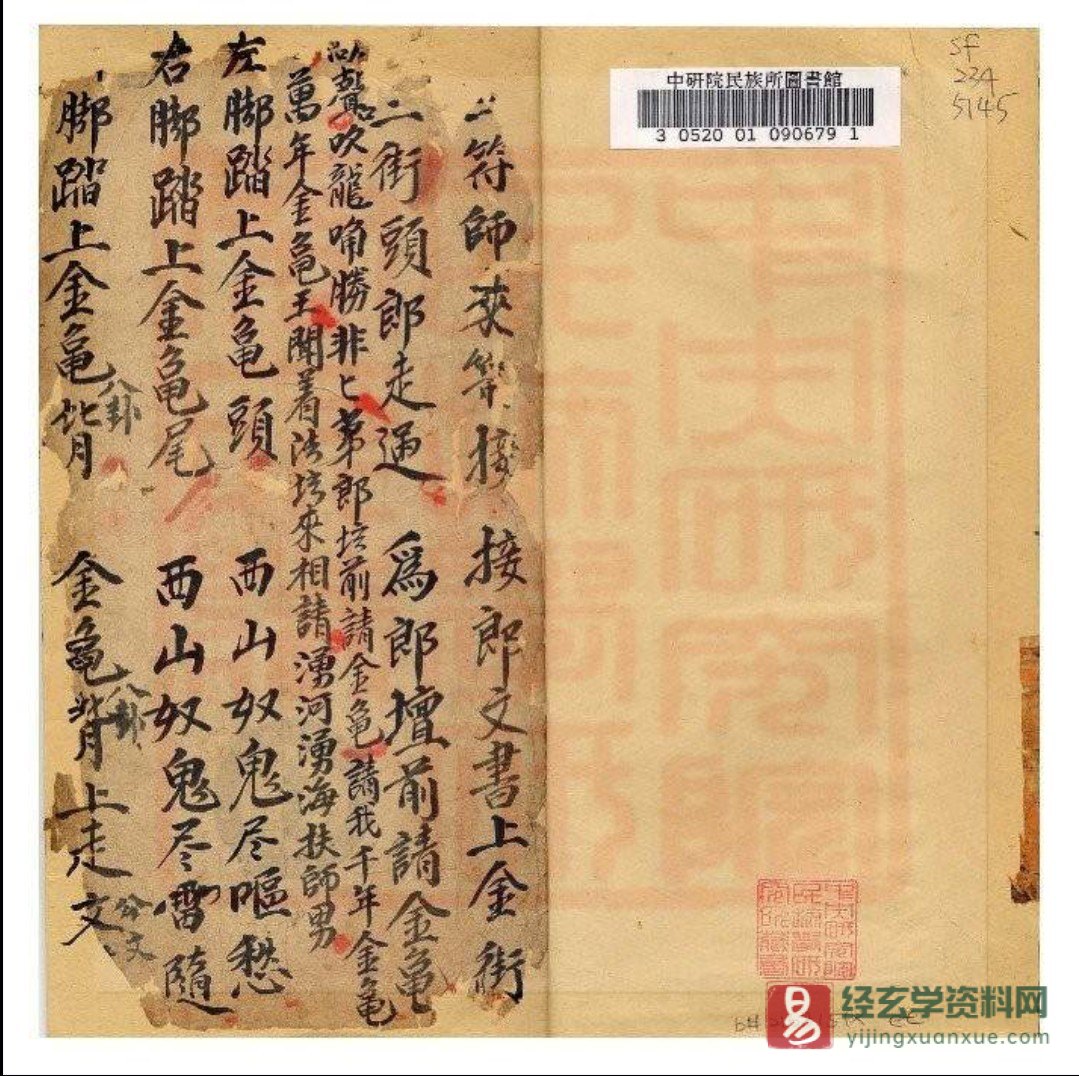 SF
224
5145
中研院民族所圖書館
3 0520 01 090679 1
符師來 接 接郎文書上金街
二街頭郎走過 為郎壇前請金亀
吹龍角勝非匕第郎坛前請金亀請我千年金亀
萬年金亀王聞着法坛來相請湧河湧海扶師男
左脚踏上金亀頭 西山奴鬼尽嘔愁
右脚踏上金亀尾 西山奴鬼尽雷随
脚踏上金亀背 金亀背上走文
八卦
八卦
易
经玄学资料网
yijingxuanxue.com